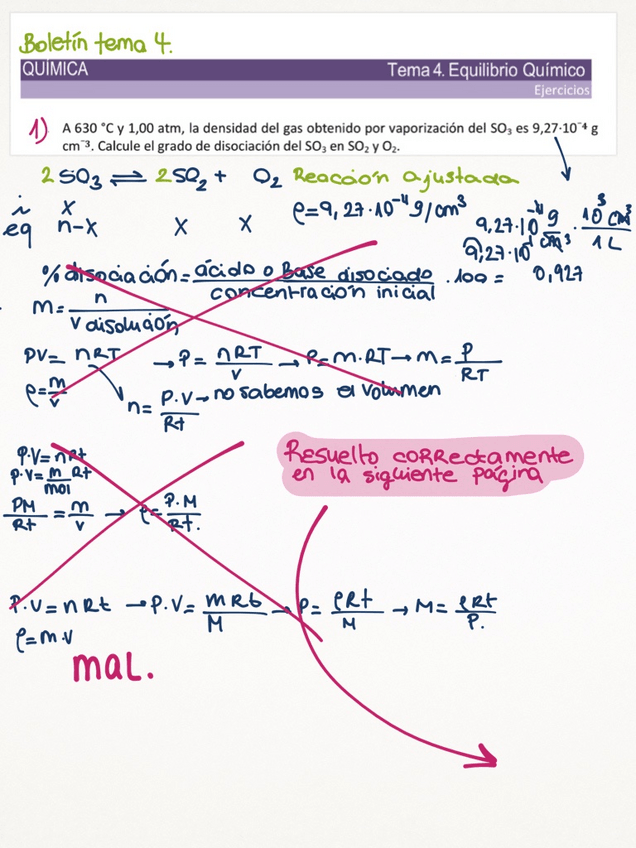 Boletín tema 4.
QUÍMICA Tema 4. Equilibrio Químico
Ejercicios
1) A 630 °C y 1,00 atm, la densidad del gas obtenido por vaporización del SO₃ es 9,27·10⁻⁴ g
cm⁻³. Calcule el grado de disociación del SO₃ en SO₂ y O₂.
2 SO₃ ⇌ 2SO₂ + O₂ Reacción ajustada
i x
eq n-x x x ρ=9,27·10⁻⁴ g/cm³
9,27·10⁻⁴ g/cm³ · 10³ cm³/1L
9,27·10⁻¹
0,927
% disociación = ácido o Base disociado/concentración inicial .100 =
M = n/V disolución
PV = nRT → P = nRT/V → P = M·RT → M = P/RT
ρ = m/v
n = P.V/Rt → no sabemos el volumen
P.V = nRt
P.V = m/mol Rt
PM/Rt = m/v → ρ = P.M/Rt.
Resuelto correctamente
en la siguiente página
P.V = nRt → P.V = mRt/M → P = ρRt/M → M = ρRt/P.
ρ = m.v
mal.